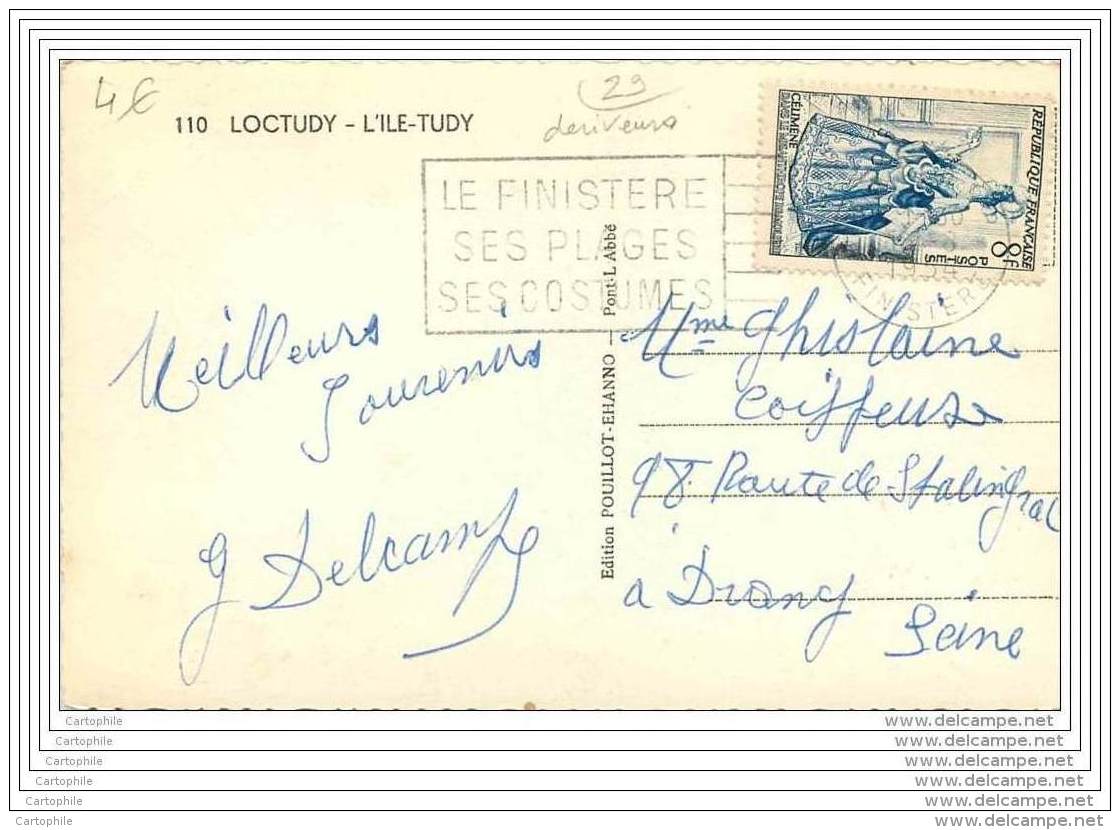 4€
29
deriveurs
110 LOCTUDY - L'ILE-TUDY
LE FINISTERE
SES PLAGES
SES COSTUMES
REPUBLIQUE FRANÇAISE
8F
POSTES
CÉLIMÈNE
DANS LE
1954
FINISTERE
Meilleurs
Souvenirs
G Delcamp
Edition POUILLOT-EHANNO — Pont-L'Abbé
Mme Ghislaine
Coiffeuse
98. Route de Stalingrad
à Drancy
Seine
Cartophile
www.delcampe.net
Cartophile
www.delcampe.net
Cartophile
www.delcampe.net
Cartophile
www.delcampe.net
Cartophile
www.delcampe.net
Cartophile
www.delcampe.net